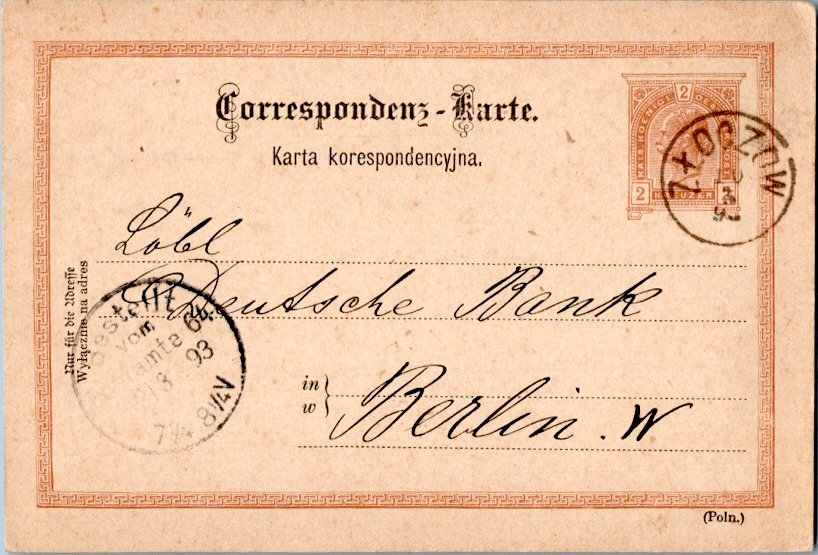 Correspondenz-Karte.
Karta korespondencyjna.
2
2
KREUZER
ZŁOCZÓW
3
Löbl
Deutsche Bank
in
w
Berlin. W
Nur für die Adresse
Wyłącznie na adres
Bestellt
vom
Postamte 64
93
7¼ 8¼V
(Poln.)